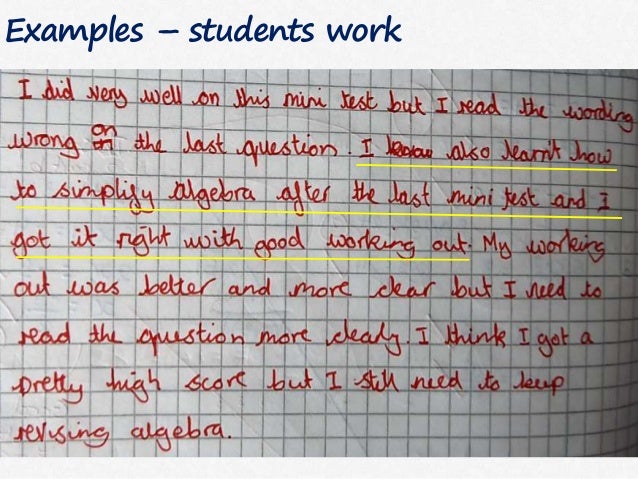 Examples – students work
I did very well on this mini test but I read the wording
wrong on the last question. I also learnt how
to simplify algebra after the last mini test and I
got it right with good working out. My working
out was better and more clear but I need to
read the question more clearly. I think I got a
pretty high score but I still need to keep
revising algebra.